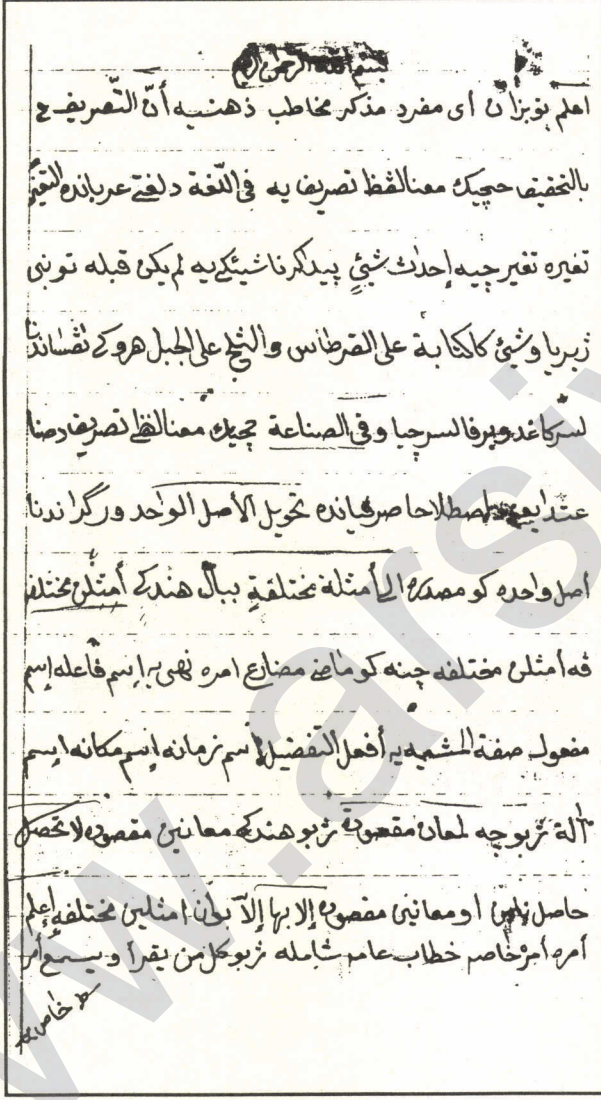 بسم الله الرحمن الرحيم
اعلم بوبزان أى مفرد مذكر مخاطب ذهنسيه أنّ التّصريف ج
بالتخفيف حجيك معنا لفظ تصريف يه فى اللّغة د لغتى عرباندە التغير
تغيره تغير چيه إحداث شئيٍ پيداكرنا شيئكى يه لم يكن قبله تونبى
ژبريا وشيئ كالكتابة على القرطاس والثلج على الجبل هروكى نڤساندنا
لسر كاغد وبرفا لسر چيا وفى الصناعة حجيك معنا لفظ تصريف دصنا
عتدا يعنى اصطلاحا صرفيانده تحويل الأصل الواحد ورگراندنا
أصل واحده كو مصدره إلى أمثلة مختلفةٍ ببال هندكى أمثلن مختلفه
ڤه أمثلن مختلفه چنه كو ماضى مضارع امره نهى يه إسم فاعله إسم
مفعوله صفة المشبهه يه أفعل التفضيل إسم زمانه إسم مكانه إسم
آلة ژبوچه لمعان مقصودة ژبو هندكه معانين مقصوده لا تحصل
حاصل نابن او معانين مقصوده إلا بها إلاّ بوان امثلين مختلفه إعلم
أمره أمر خاصه خطاب عامه شامله ژبو كل من يقرأ ويسمع أمر
خاص
www.arsiv